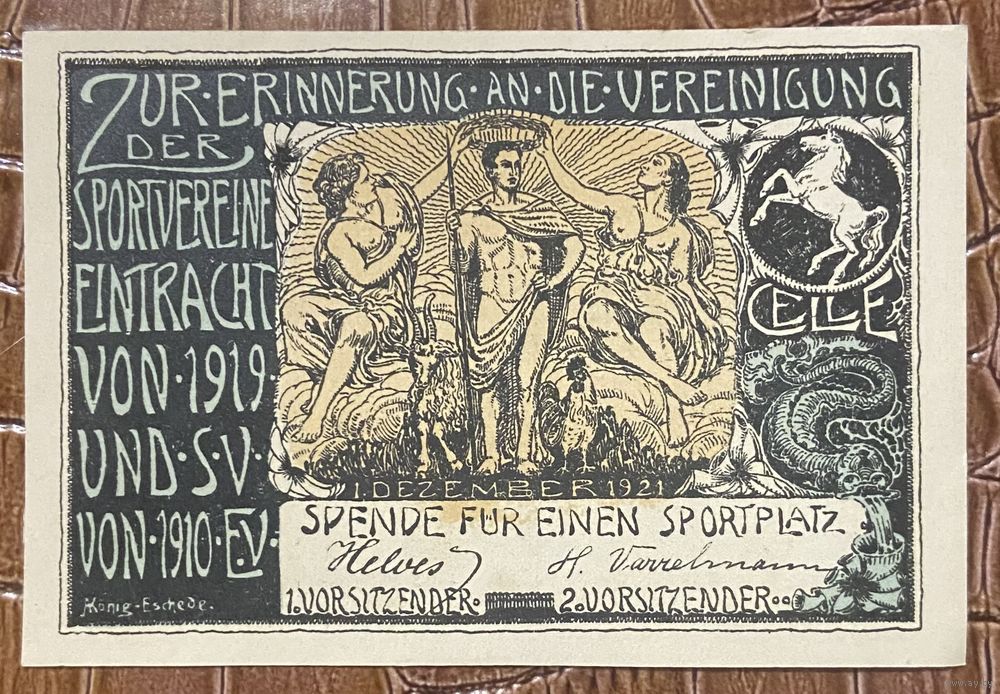 ZUR·ERINNERUNG·AN·DIE·VEREINIGUNG
DER
SPORTVEREINE
EINTRACHT
VON·1919·
UND·S·V·
VON·1910·E.V.
CELLE
1. DEZEMBER 1921
SPENDE FÜR EINEN SPORTPLATZ.
Helves
H. Varrelmann
1.VORSITZENDER. 2.VORSITZENDER.
König-Eschede.
www.ay.by